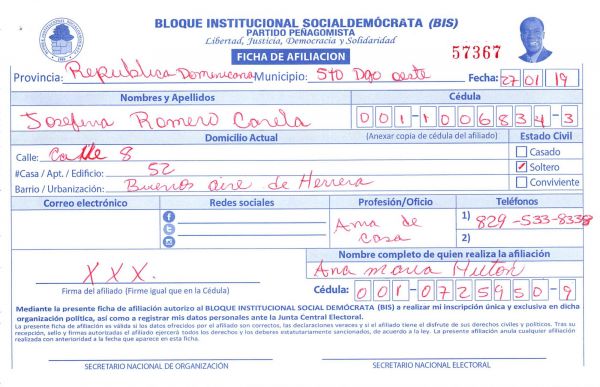 BLOQUE INSTITUCIONAL SOCIALDEMÓCRATA (BIS)
PARTIDO PEÑAGOMISTA
Libertad, Justicia, Democracia y Solidaridad
FICHA DE AFILIACION
57367
Provincia: Republica Dominicana Municipio: Sto Dgo oeste Fecha: 27 01 19
Nombres y Apellidos Cédula
Josefina Romero Canela 001-1006834-3
Domicilio Actual (Anexar copia de cédula del afiliado) Estado Civil
Calle: Calle 8 Casado
#Casa / Apt. / Edificio: 52 Soltero
Barrio / Urbanización: Buenos aire de Herrera Conviviente
Correo electrónico Redes sociales Profesión/Oficio Teléfonos
Ama de casa
1) 829-533-8338
2)
Nombre completo de quien realiza la afiliación
XXX. Ana maria Hilton
Firma del afiliado (Firme igual que en la Cédula) Cédula: 001-0725950-9
Mediante la presente ficha de afiliación autorizo al BLOQUE INSTITUCIONAL SOCIAL DEMÓCRATA (BIS) a realizar mi inscripción única y exclusiva en dicha
organización política, así como a registrar mis datos personales ante la Junta Central Electoral.
La presente ficha de afiliación es válida si los datos ofrecidos por el afiliado son correctos, las declaraciones veraces y si el afiliado tiene el disfrute de sus derechos civiles y políticos. Tras su
recepción, sello y firmas autorizadas el afiliado ejercerá todos los derechos y los deberes estatutariamente sancionados, de acuerdo a la ley. La presente afiliación anula cualquier afiliación
realizada con anterioridad a la fecha que aparece en esta ficha.
SECRETARIO NACIONAL DE ORGANIZACIÓN SECRETARIO NACIONAL ELECTORAL